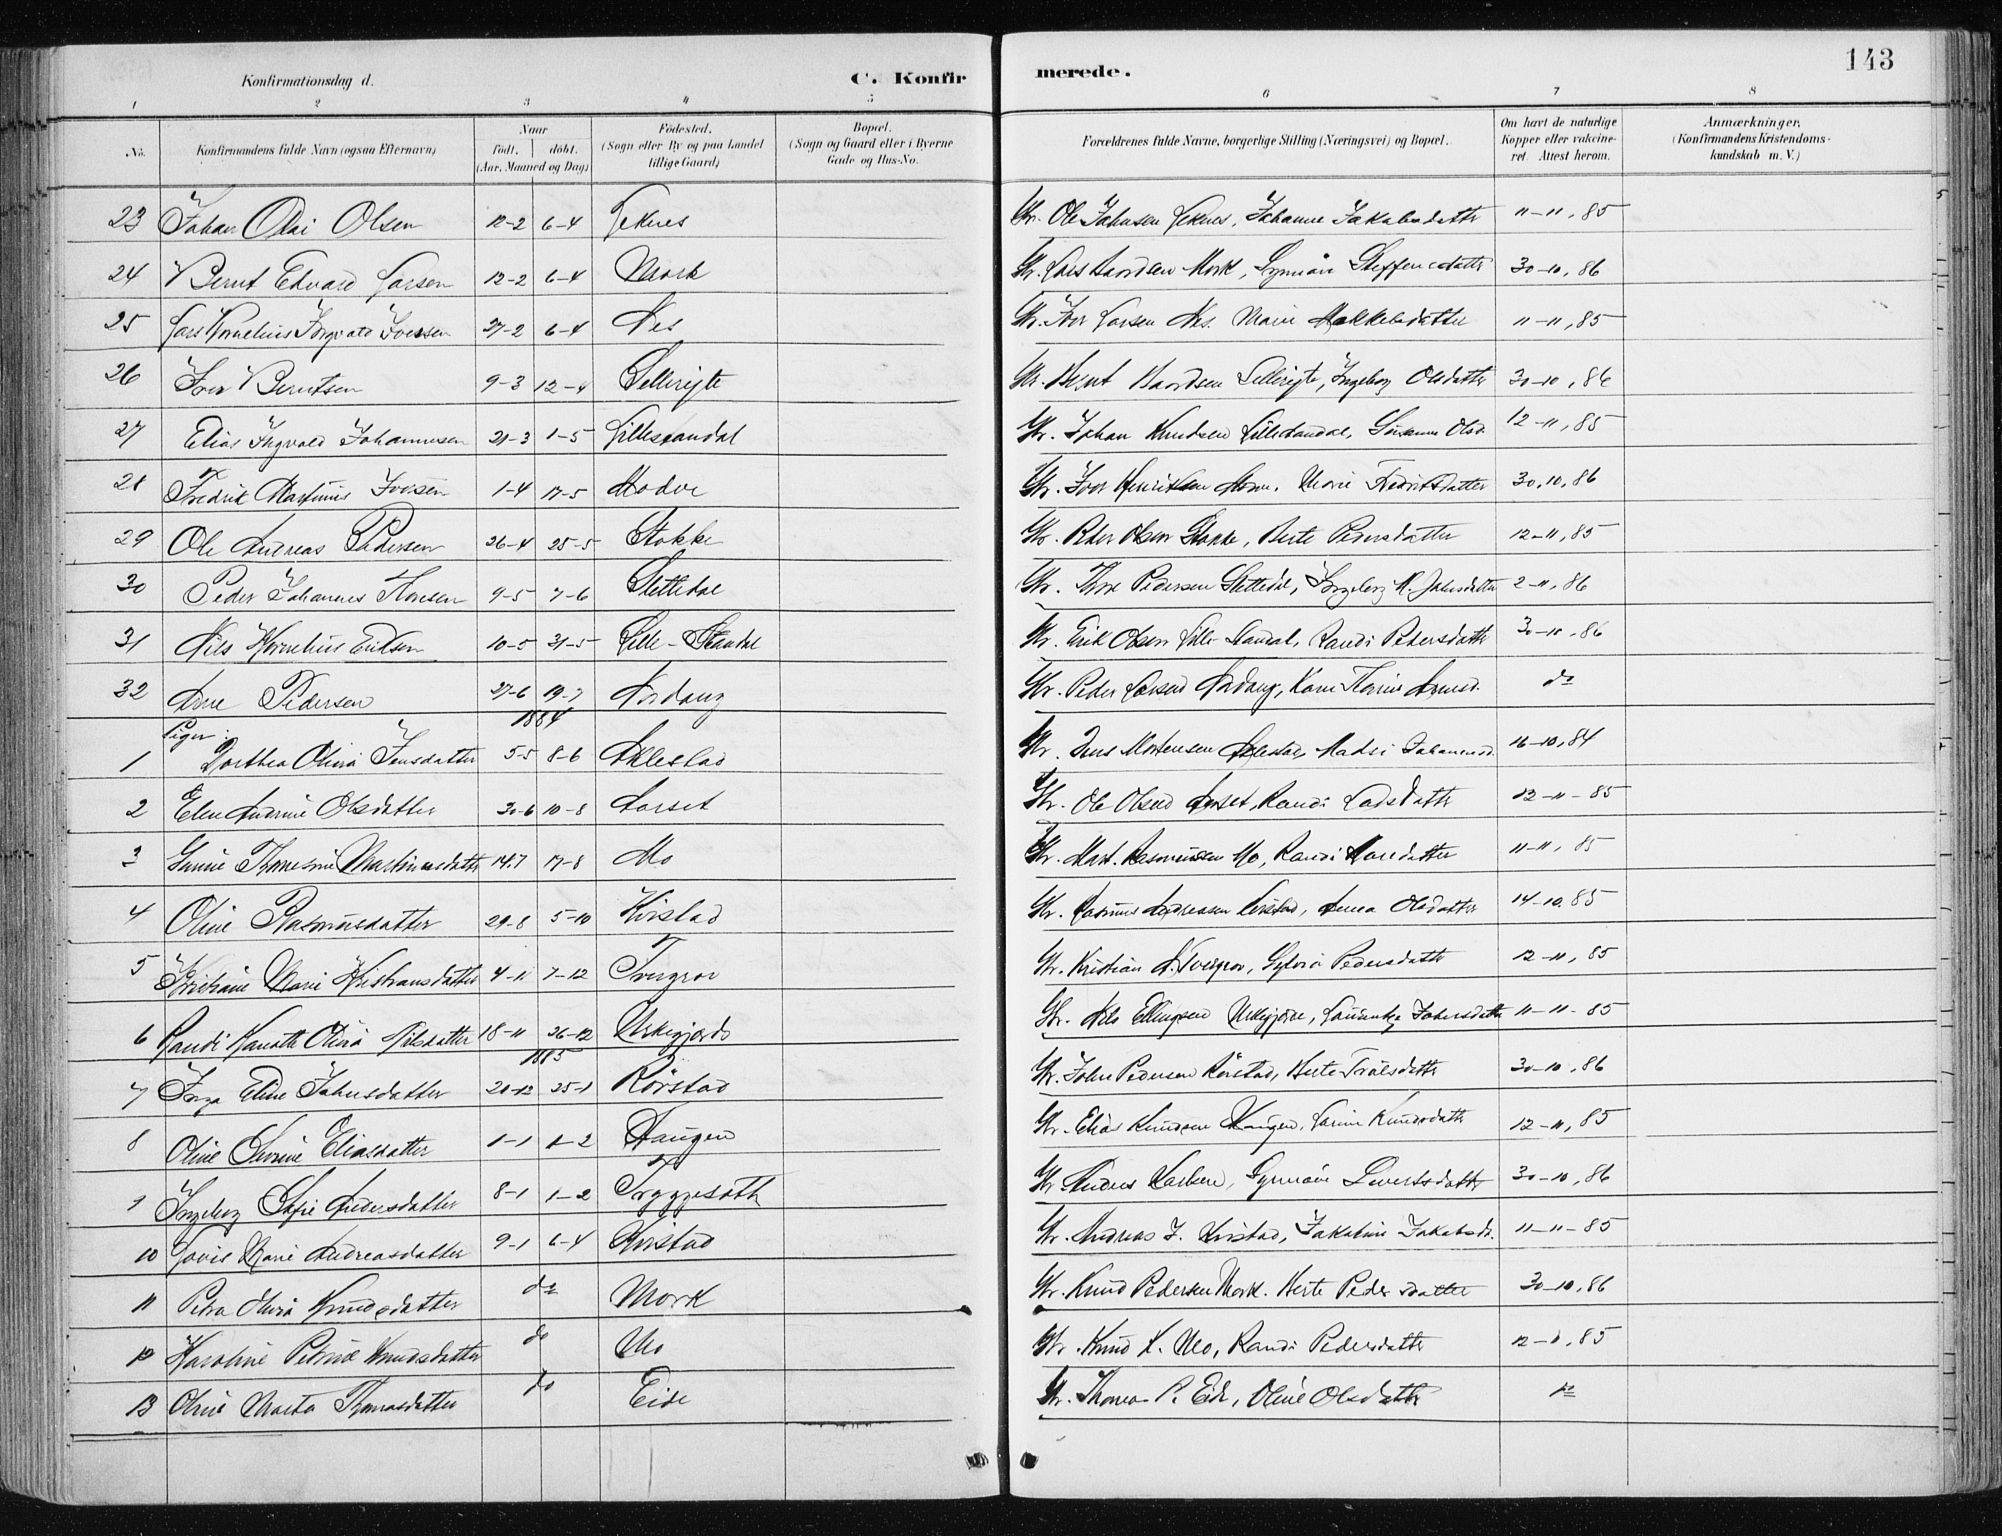 143
Konfirmationsdag d.
C. Konfir merede.
1 2 3 4 5 6 7 8
No. Konfirmandens fulde Navn (ogsaa Efternavn) Naar födt. döbt. (Aar, Maaned og Dag) Födested. (Sogn eller By og paa Landet tillige Gaard) Bopæl. (Sogn og Gaard eller i Byerne Gade og Hus-No. Forældrenes fulde Navne, borgerlige Stilling (Næringsvei) og Bopæl. Om havt de naturlige Kopper eller vakcineret. Attest herom. Anmærkninger. (Konfirmandens Kristendomskundskab m. V.)
23 Johan Olai Olsen 12-2 6-4 Leknes Gr. Ole Johnsen Leknes, Johanne Jakobsdatter 11-11, 85
24 Bernt Edvard Larsen 12-2 6-4 Mork Gr. Lars Baardsen Mork, Steffensdatter 30-10, 86
25 Lars Kornelius Ingvald Iversen 27-2 6-4 Nes Gr. Iver Larsen Nes. Marie 11-11, 85
26 Iver Berntsen 9-3 12-4 Gr. Bernt Baardsen Ingeborg Olsdatter 30-10, 86
27 Elias Ingvald Johannesen 21-3 1-5 Lillestandal Gr. Johan Knudsen Lillestandal, Olsd. 12-11, 85
28 Fredrik Martinus Iversen 1-4 17-5 Gr. Iver Marie Fredriksdatter 30.10, 86
29 Ole Andreas Pedersen 26-4 25-5 Stokke Gr. Peder Olsen Stokke, Berte Pedersdatter 12-11, 85
30 Peder Johannes Toresen 9-5 7-6 Slettedal Gr. Thore Pedersen Slettedal, Ingeborg K. Johnsdatter 2-11, 86
31 Nils Kornelius Eriksen 10-5 31-5 Lille-Standal Gr. Erik Olsen Lille Standal, Randi Pedersdatter 30-10, 86
32 Arne Pedersen 27-6 19-7 Nordang Gr. Peder Larsen Nordang, Arnesd. do
Piger: 1884
1 Dorthea Olina Jensdatter 5-5 8-6 Aklestad Gr. Jens Mortensen Aklestad, 16-10, 84
2 Elen Andrine Olsdatter 30-6 10-8 Aarset Gr. Ole Olsen Aarset, Randi Ladsdatter 12-11-85
3 Thomesine Martinusdatter 14.7 17-8 Mo Gr. Mart. Rasmussen Mo, Randi 11-11, 85
4 Oline Rasmusdatter 29-8 5-10 Kvistad Gr. Rasmus Andreasen Kvistad, Anna Olsdatter 14-10, 85
5 Kristiane Marie Kristiansdatter 4-11 7-12 Tvergrov Gr. Kristian A. Tvergrov, Sylvia Pedersdatter 12-11, 85
6 Randi Kanutte Olina Nilsdatter 18-11 26-12 Urkegjerde Gr. Nils Ellingsen Urkegjerde, Johnsdatter 11-11-85
1885
7 Inga Eline Johnsdatter 20-12 25-1 Rörstad Gr. John Pedersen Rörstad, Berte 30-10, 86
8 Oline Eliasdatter 1-1 1-2 Haugen Gr. Elias Knudsen Haugen, Knudsdatter 12-11, 85
9 Ingeborg Andersdatter 8-1 1-2 Gr. Anders Sivertsdatter 30-10, 86
10 Lovise Marie Andreasdatter 9-1 6-4 Kvistad Gr. Andreas J. Kvistad, Jakobine Jakobsdr. 11-11-85
11 Petra Olina Knudsdatter do Mork Gr. Knud Pedersen Mork. Berte Pedersdatter 30-10, 86
12 Karoline Petrine Knudsdatter do Mo Gr. Knud K. Mo, Randi Pedersdatter 12-11, 85
13 Oline Marta Thomasdatter do Eide Gr. Thomas P. Eide, Oline Olsdatter do